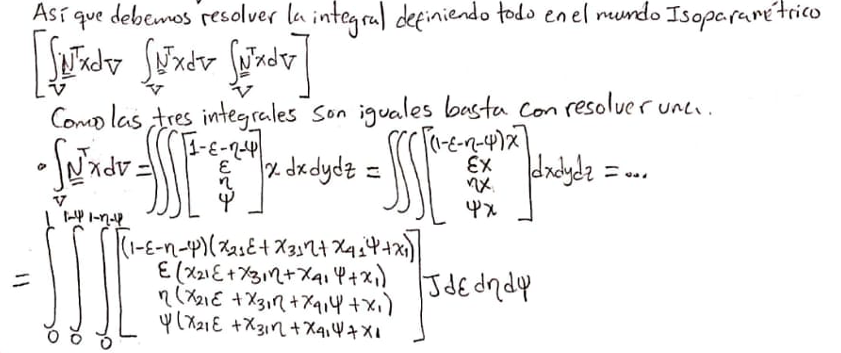 Así que debemos resolver la integral definiendo todo en el mundo Isoparamétrico
[∫_V N^T x dV ∫_V N^T x dV ∫_V N^T x dV]
Como las tres integrales son iguales basta con resolver una.
• ∫_V N^T x dV = ∭ [1-ε-η-ψ; ε; η; ψ] x dx dy dz = ∭ [(1-ε-η-ψ)x; εx; ηx; ψx] dx dy dz = ...
= ∫_0^1 ∫_0^{1-ψ} ∫_0^{1-η-ψ} [(1-ε-η-ψ)(x21ε + x31η + x41ψ + x1); ε(x21ε + x31η + x41ψ + x1); η(x21ε + x31η + x41ψ + x1); ψ(x21ε + x31η + x41ψ + x1] J dε dη dψ